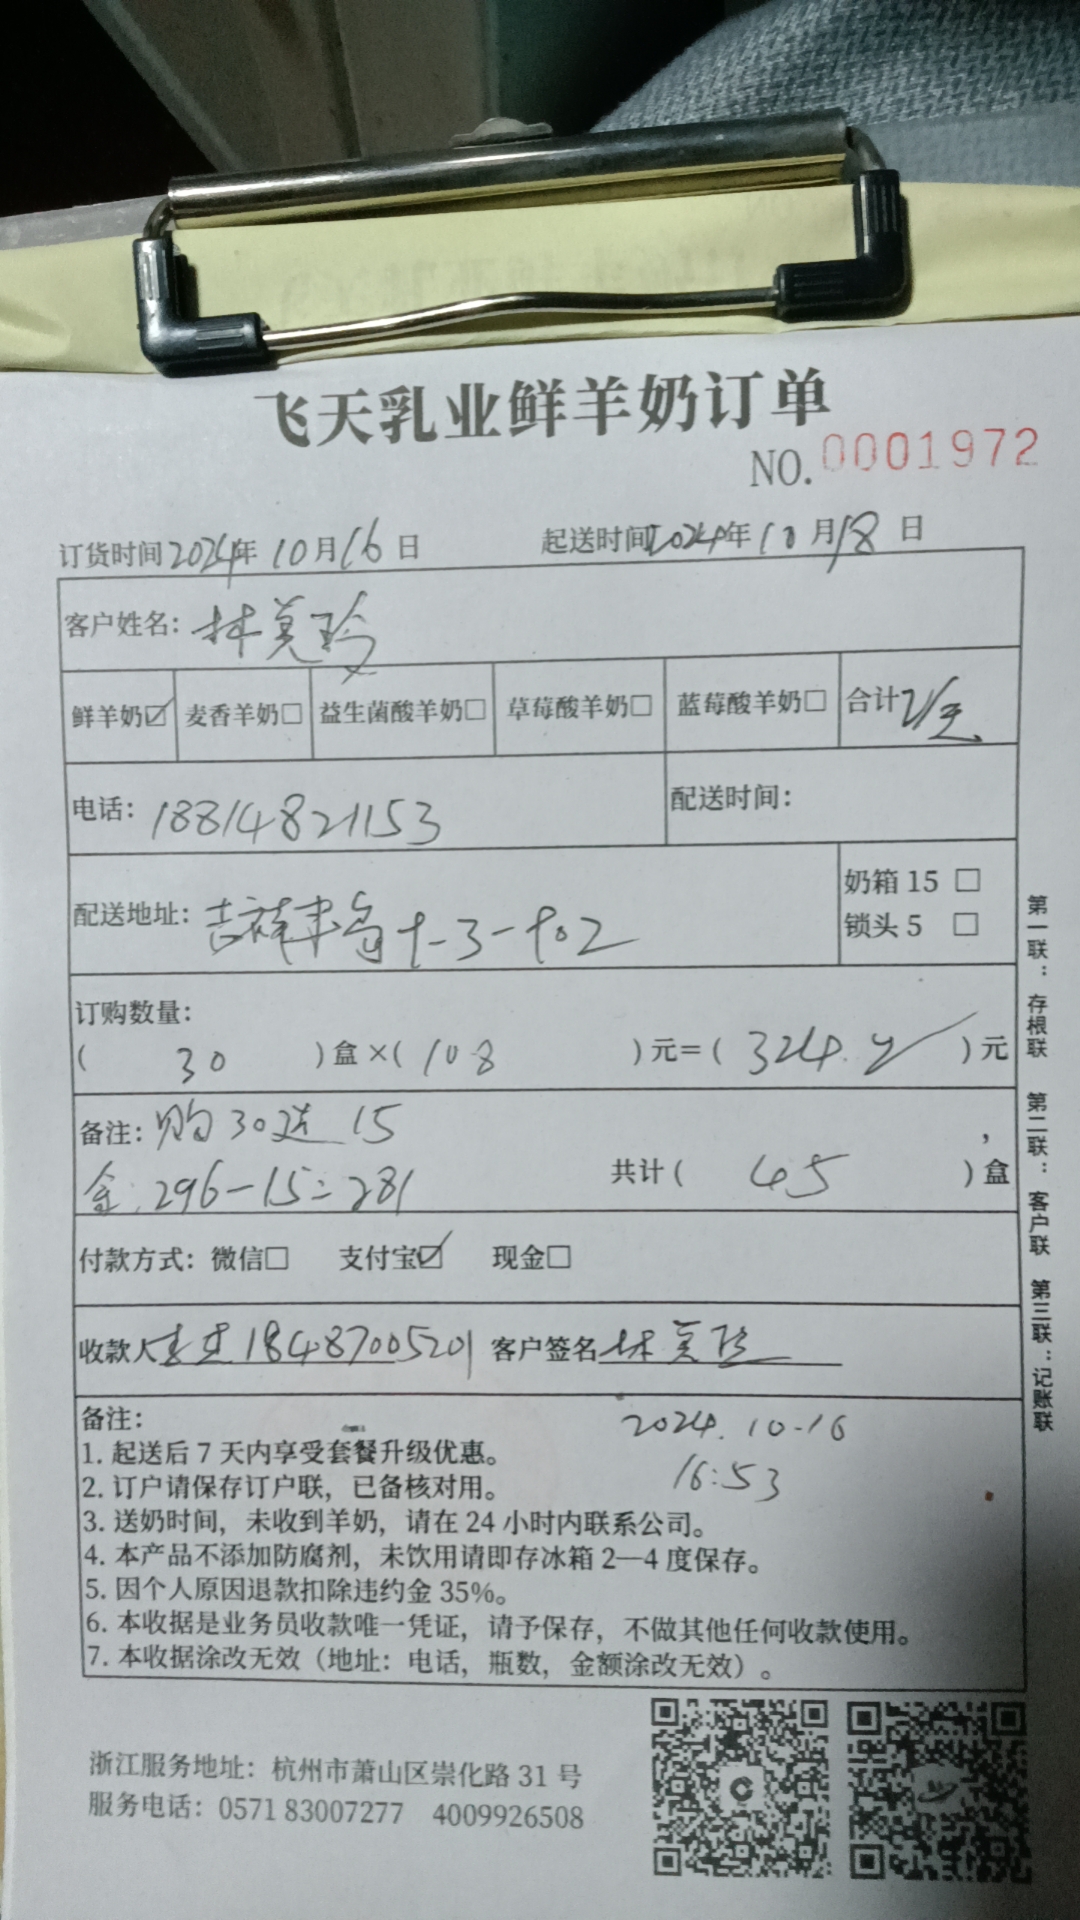 飞天乳业鲜羊奶订单
NO.0001972
订货时间2024年10月16日 起送时间2024年10月18日
客户姓名：林莫珍
鲜羊奶☑ 麦香羊奶□ 益生菌酸羊奶□ 草莓酸羊奶□ 蓝莓酸羊奶□ 合计2/天
电话：18814821153 配送时间：
配送地址：吉祥半岛 -3- 02
奶箱 15 □
锁头 5 □
订购数量：
( 30 )盒×( 10.8 )元=( 324. )元
备注：购30送15
金:296-15=281 共计( 45 )盒
付款方式：微信□ 支付宝☑ 现金□
收款人李杰18487005201 客户签名林莫珍
备注：
2024.10.16
16:53
1. 起送后 7 天内享受套餐升级优惠。
2. 订户请保存订户联，已备核对用。
3. 送奶时间，未收到羊奶，请在 24 小时内联系公司。
4. 本产品不添加防腐剂，未饮用请即存冰箱 2—4 度保存。
5. 因个人原因退款扣除违约金 35%。
6. 本收据是业务员收款唯一凭证，请予保存，不做其他任何收款使用。
7. 本收据涂改无效（地址：电话，瓶数，金额涂改无效）。
第一联：存根联 第二联：客户联 第三联：记账联
浙江服务地址：杭州市萧山区崇化路 31 号
服务电话：0571 83007277 4009926508